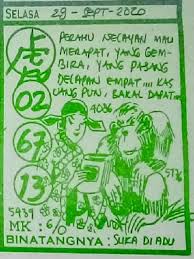 SELASA 29 - SEPT - 2020
PERAHU NELAYAN MAU
MERAPAT, YANG GEM-
BIRA, YANG PASANG
DELAPAN EMPAT.... KAS
UANG PUN, BAKAL DAPAT...
02
67
13
4036
5939
MK : 6/0
BINATANGNYA : SUKA DI ADU